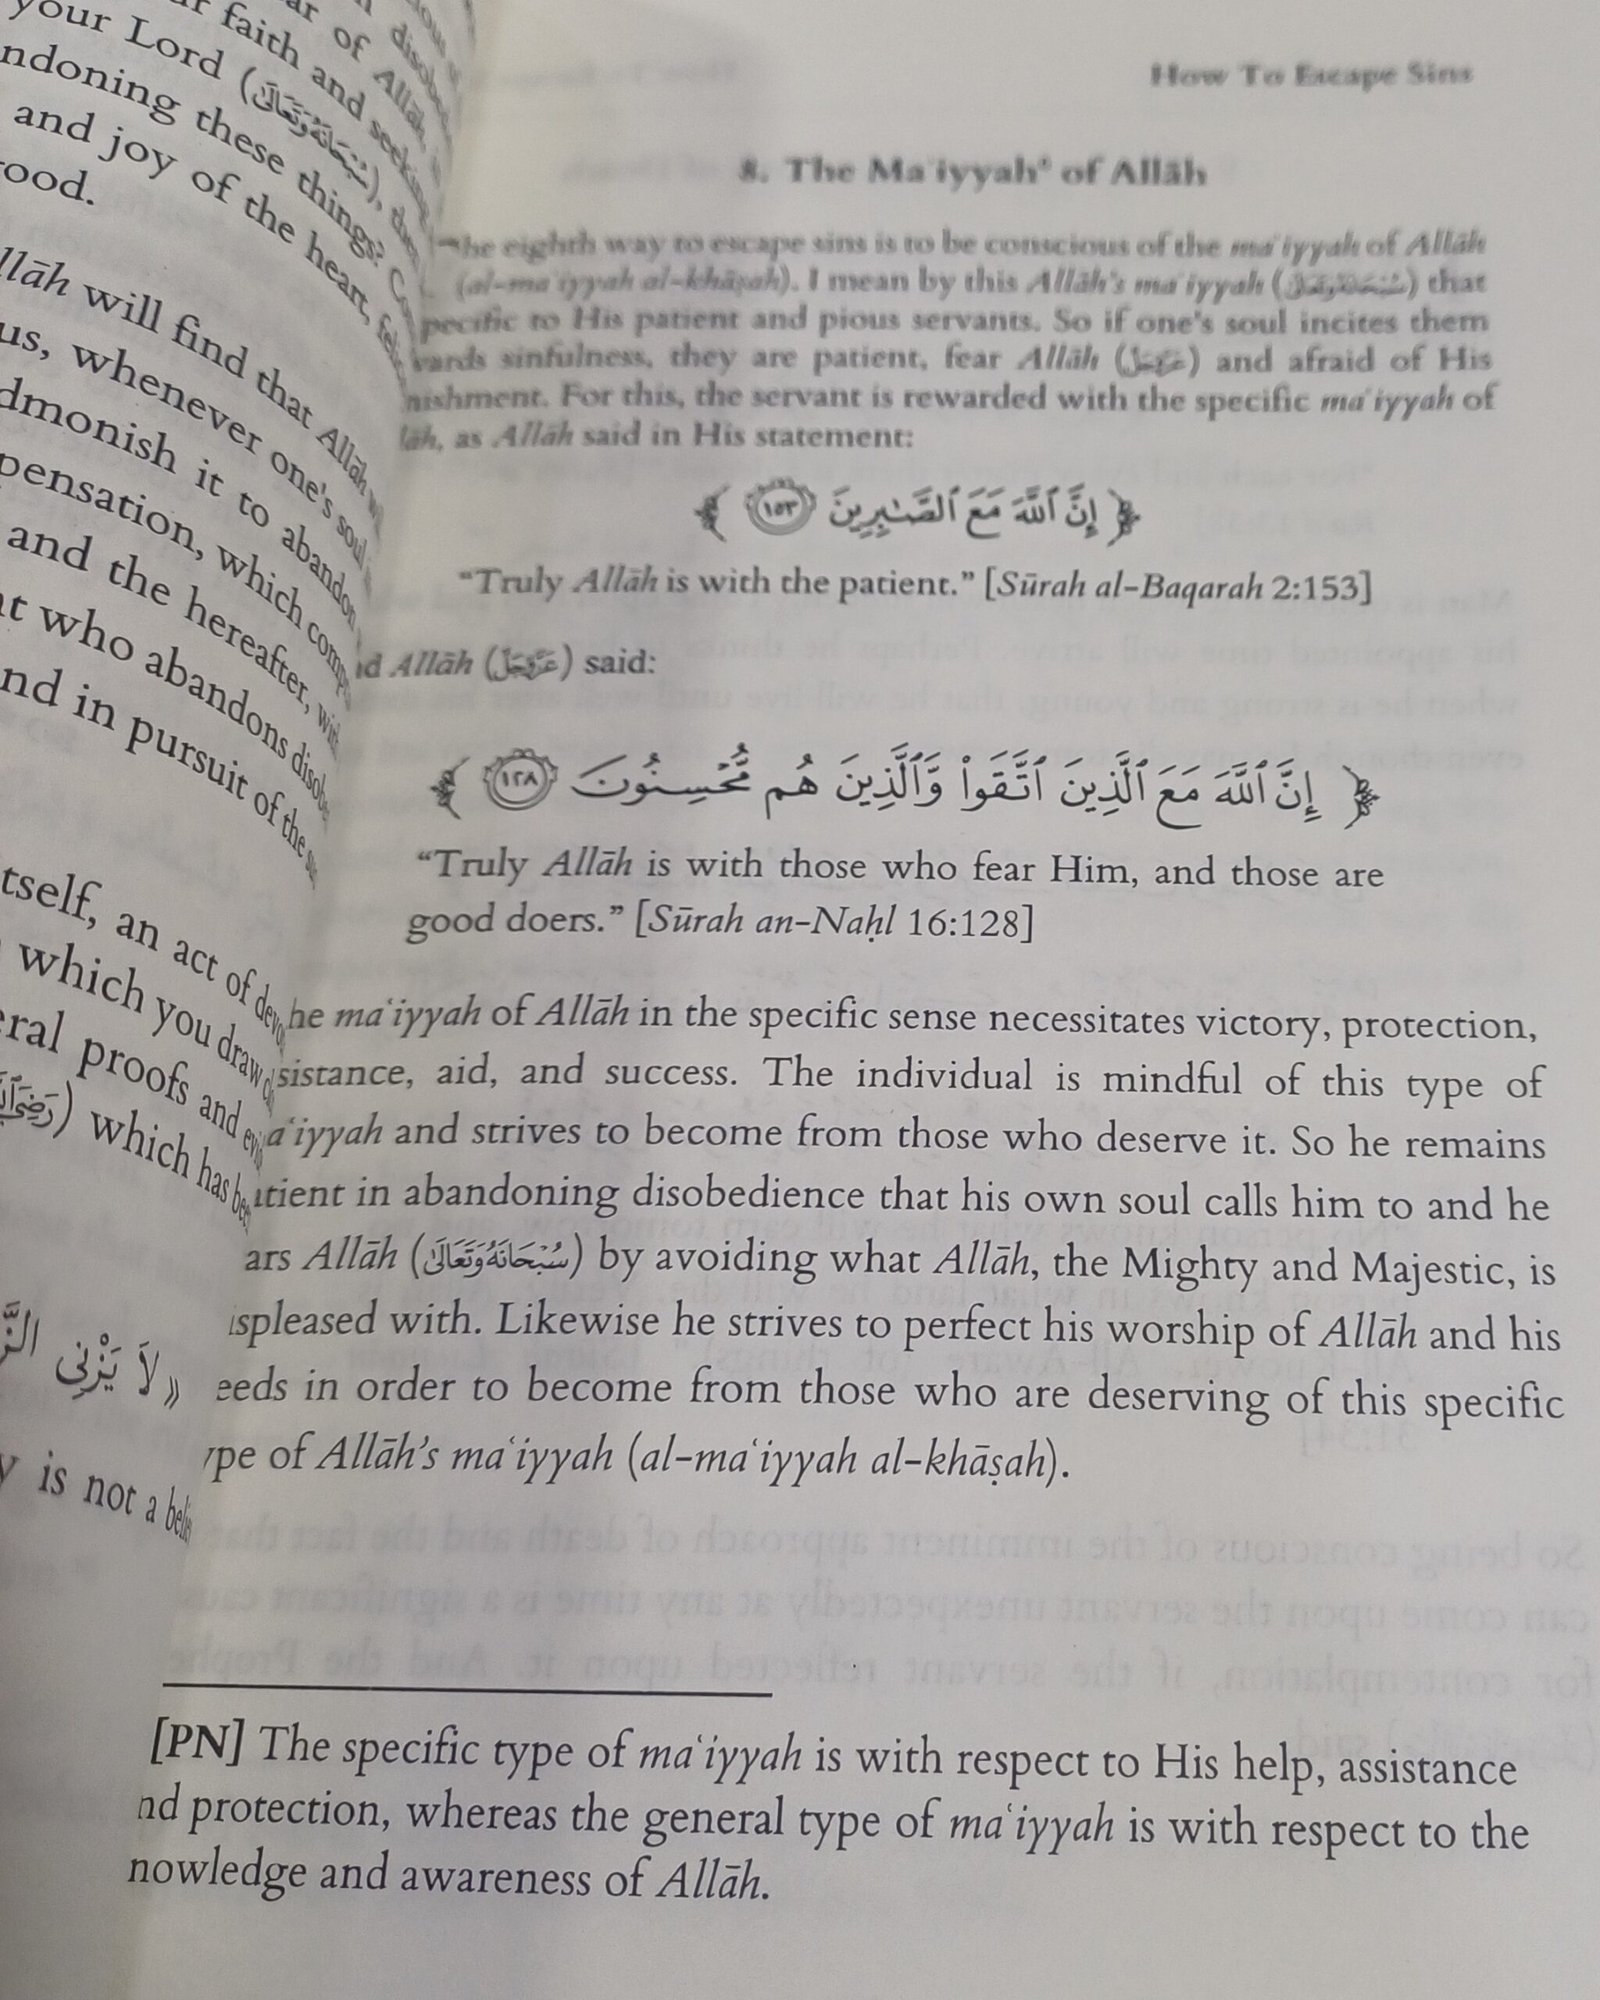 your Lord (سُبْحَانَهُ وَتَعَالَىٰ),
faith and
of Allāh,
these things?
and joy of the heart,
ood.
llāh will find that Allāh
us, whenever one's soul
dmonish it to abandon
pensation, which
and the hereafter,
who abandons
nd in pursuit of the
tself, an act of
which you draw
eral proofs and
which has
«لَا يَزْنِي
is not a
How To Escape Sins
8. The Maʿiyyah⁹ of Allāh
he eighth way to escape sins is to be conscious of the maʿiyyah of Allāh
(al-maʿiyyah al-khāṣah). I mean by this Allāh's maʿiyyah (سُبْحَانَهُ وَتَعَالَىٰ) that
pecific to His patient and pious servants. So if one's soul incites them
vards sinfulness, they are patient, fear Allāh (عَزَّوَجَلَّ) and afraid of His
nishment. For this, the servant is rewarded with the specific maʿiyyah of
lāh, as Allāh said in His statement:
﴿ إِنَّ ٱللَّهَ مَعَ ٱلصَّـٰبِرِينَ ١٥٣ ﴾
“Truly Allāh is with the patient.” [Sūrah al-Baqarah 2:153]
d Allāh (عَزَّوَجَلَّ) said:
﴿ إِنَّ ٱللَّهَ مَعَ ٱلَّذِينَ ٱتَّقَوا۟ وَّٱلَّذِينَ هُم مُّحْسِنُونَ ١٢٨ ﴾
“Truly Allāh is with those who fear Him, and those are
good doers.” [Sūrah an-Naḥl 16:128]
he maʿiyyah of Allāh in the specific sense necessitates victory, protection,
sistance, aid, and success. The individual is mindful of this type of
aʿiyyah and strives to become from those who deserve it. So he remains
tient in abandoning disobedience that his own soul calls him to and he
ars Allāh (سُبْحَانَهُ وَتَعَالَىٰ) by avoiding what Allāh, the Mighty and Majestic, is
spleased with. Likewise he strives to perfect his worship of Allāh and his
eeds in order to become from those who are deserving of this specific
ype of Allāh’s maʿiyyah (al-maʿiyyah al-khāṣah).
[PN] The specific type of maʿiyyah is with respect to His help, assistance
nd protection, whereas the general type of maʿiyyah is with respect to the
nowledge and awareness of Allāh.